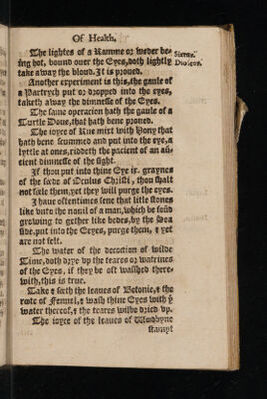 Of Health.
The lightes of a Ramme or weder be-
ing hot, bound ouer the Eyes, doth lightly
take away the bloud. It is proued.
Another experiment is this, the gaule of
a Partrych put or dropped into the eyes,
taketh away the dimnesse of the Eyes.
The same operacion hath the gaule of a
Turtle Doue, that hath bene proued.
The ioyce of Rue mixt with Hony that
hath bene scummed and put into the eye, a
lyttle at ones, riddeth the pacient of an aũ-
cient dimnesse of the sight.
If thou put into thine Eye ix. graynes
of the sæde of Oculus Christi, thou shalt
not fæle them, yet they will purge the eyes.
I haue oftentimes sene that litle stones
like vnto the nauil of a man, which be foũd
growing to gether like bedes, by the Sea
side, put into the Eeyes, purge them, & yet
are not felt.
The water of the decoction of wilde
Time, doth drye vp the teares or watrines
of the Eyes, if they be oft wasshed there-
with, this is true.
Take & seeth the leaues of Betonie, & the
rote of Fennel, & wash thine Eyes with ẏ
water thereof, & the teares wilbe dried vp.
The ioyce of the leaues of Wodbyne
stampt
Dioscor.